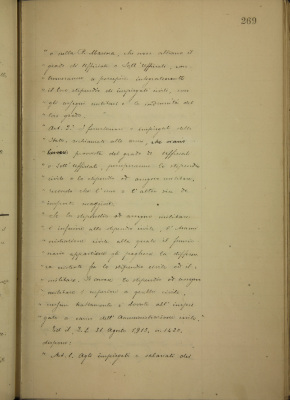 269
" o nella R. Marina, che non abbiano il
" grado di ufficiali o sott'ufficiali, con-
" tinueranno a percepire interamente
" il loro stipendio di impiegati civili, con
" gli assegni militari e le indennità del
" loro grado.
" Art. 2. I funzionari e impiegati dello
" Stato, richiamati alle armi,
" provvisti del grado di ufficiali
" o sott'ufficiali, percepiranno lo stipendio
" civile o lo stipendio ed assegni militari,
" secondo che l'uno o l'altro sia da
" Se lo stipendio ed assegni militari
" è inferiore allo stipendio civile, l'Ammi-
" nistrazione civile alla quale il funzio-
" nario appartiene gli pagherà la differen-
" za risultante fra lo stipendio civile ed il
" militare. Se invece lo stipendio ed assegni
" militari è superiore a quello civile,
" trattamento è dovuto all'impie-
" gato a carico dell'Amministrazione civile."
Art. 1. Agli impiegati e salariati del